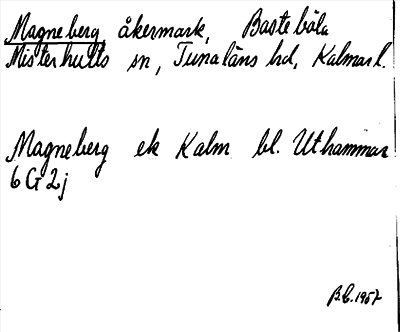 Magneberg, åkermark, Bastebåla
Misterhults sn, Tunaläns hd, Kalmar l.
Magneberg ek Kalm bl. Uthammar
6 G 2 j
B.C. 1957